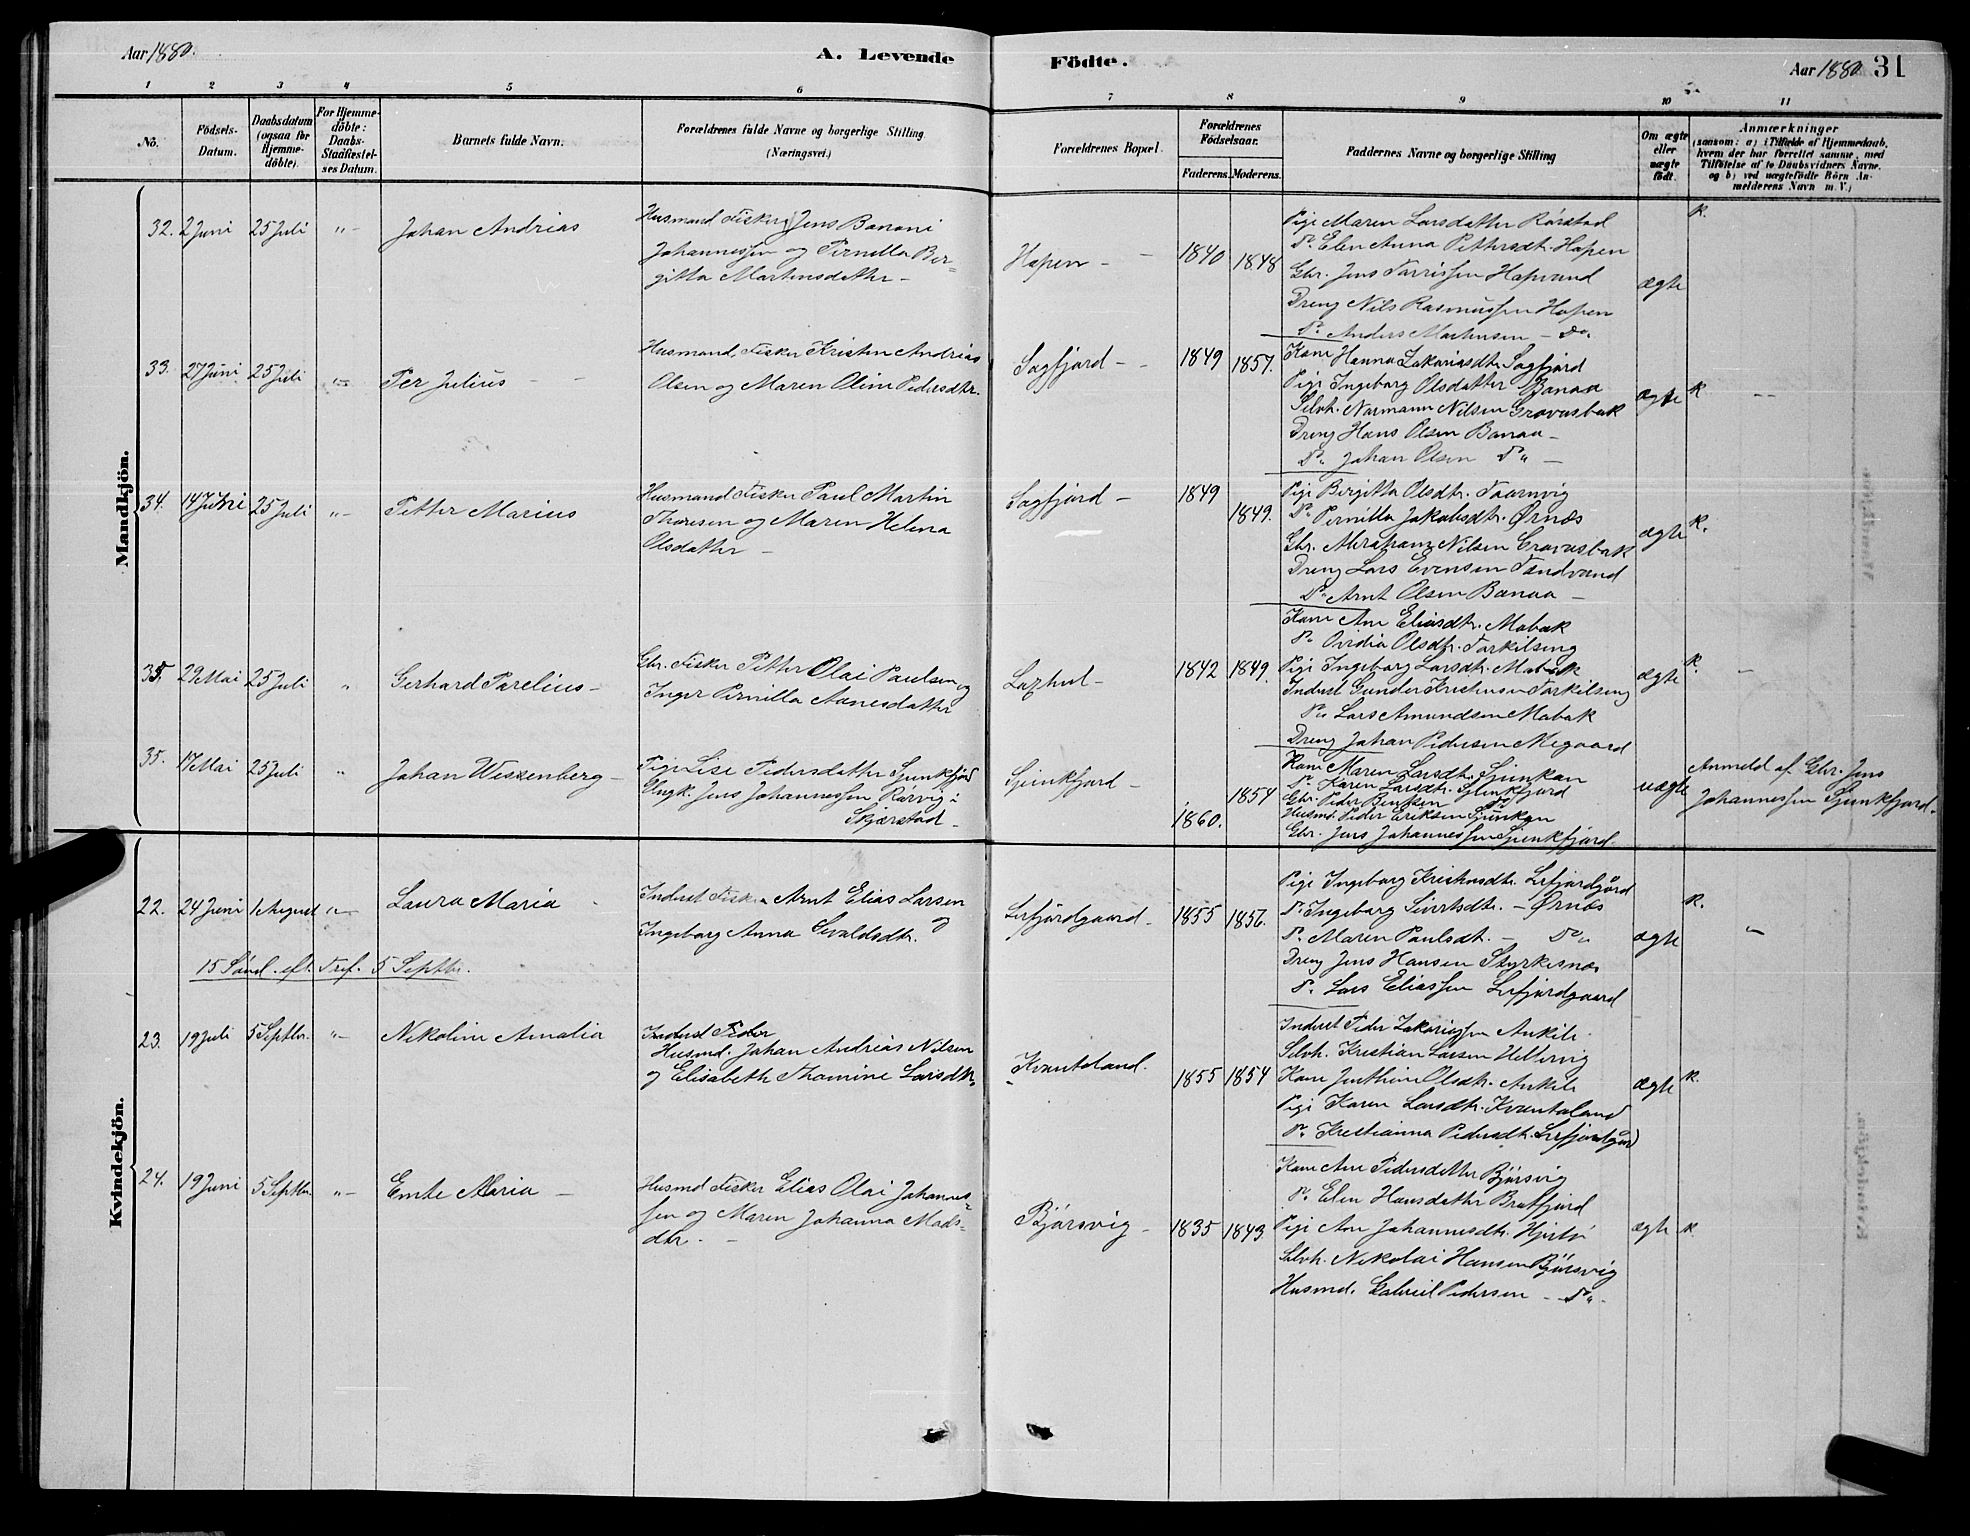 Aar 1880.
A. Levende
Födte.
Aar 1880
31
1 2 3 4 5 6 7 8 9 10 11
No.
Födsels-Datum.
Daabsdatum (ogsaa for Hjemme-döbte).
For Hjemme-döbte: Daabs-Stadfæstel-ses Datum.
Barnets fulde Navn.
Forældrenes fulde Navne og borgerlige Stilling (Næringsvei.)
Forældrenes Bopæl.
Forældrenes Födselsaar.
Faderens. Moderens.
Faddernes Navne og borgerlige Stilling
Om ægte eller uægte födt.
Anmærkninger
(saasom: a) i Tilfælde af Hjemmedaab, hvem der har forrettet samme, med Tilföielse af to Daabsvidners Navne, og b) ved uægtefödte Börn An-melderens Navn m. V.)
Mandkjön.
32. 2 Juni 25 Juli "- Johan Andrias
Husmand Fisker Jens Banoni
Johannessen og Pernilla Ber=
gitta Martinsdatter -
Hopen - - 1840 1848
Pige Maren Larsdatter Rörstad
Do. Elen Anna Pettersdtr. Hopen
Gbr. Jens Torrissen Hopvand
Dreng Nils Rasmussen Hopen
Do. Anders Martinsen - Do.
ægte k.
33. 27 Juni 25 Juli "- Per Julius - -
Husmand Fisker Kristen Andrias
Olsen og Maren Oline Pedersdtr.
Sagfjord - - 1849 1857.
Kone Hanna Zakariasdtr. Sagfjord
Pige Ingeborg Olsdatter Bonaa
Selvh. Normann Nilsen Gravusbak
Dreng Hans Olsen Bonaa -
Do. Johan Olsen Do. -
ægte k --
34. 14 Juni 25 Juli "- Petter Marius
Husmand Fisker Paul Martin
Thoresen og Maren Helena
Olsdatter -
Sagfjord - 1849 1849.
Pige Birgitta Olsdtr. Taarnvig
Do. Pernilla Jakobsdtr. Ørnæs
Gbr. Abraham Nilsen Gravusbak
Dreng Lars Evensen Tændvand
Do. Arnt Olsen Bonaa -
ægte k.
35. 29 Mai 25 Juli " Gerhard Parelius -
Gbr. Fisker Petter Olai Paulsen og
Inger Pernilla Aanesdatter
1842 1849.
Kone Ane Eliasdtr. Mobak
Do. Ovidia Olsdtr. Torkilseng
Pige Ingeborg Larsdtr. Mobak
Inderst Gunder Kristensen Torkilseng
Do. Lars Amundsen Mobak
Dreng Johan Pedersen Megaard
ægte k. -
35. 17 Mai 25 Juli " Johan Weszenberg -
Pige Lise Pedersdatter Sjunkfjord
Ungk. Jens Johannessen Rörvig i
Skjerstad -
Sjunkfjord - 1860. 1854
Kone Maren Larsdtr. Sjunkan
Do. Karen Larsdtr. Sjunkfjord
Gbr. Peder Bentsen Do
Husmd. Peder Eriksen Sjunkan
Gbr. Jens Johannessen Sjunkfjord.
uægte
Anmeld af Gbr. Jens
Johannessen Sjunkfjord.
Kvindekjön.
22. 24 Juni 1 August "- Laura Maria
Inderst Fisker Arnt Elias Larsen og
Ingeborg Anna Sivaldsdtr.
Lefjordgaard. 1855 1856.
Pige Ingeborg Kristensdtr. Lefjordgård
Do. Ingeborg Sivertsdtr. - Ørnæs
Do. Maren Paulsdt. - Do.
Dreng Jens Hansen Styrkesnæs
Do. Lars Eliassen Lefjordgaard
ægte k. -
15 Sönd. eft. Tref. 5 Septbr.
23. 19 Juli 5 Septbr. "- Nikoline Amalia
Inderst Fisker
Husmd. Johan Andreas Nilsen
og Elisabeth Thomine Larsdtr.
Kvantoland. 1855 1854
Inderst Peder Zakariassen Ankile
Selvh. Kristian Larsen Hellervig
Kone Jenthine Olsdtr. Ankile
Pige Karen Larsdtr. Kvantoland
Do. Kristianna Pedersdtr. Lefjordgård
ægte k.
24. 19 Juni 5 Septbr. "- Emte Maria -
Husmd Fisker Elias Olai Johannes=
sen og Maren Johanna Mads=
dtr. -
Bjørsvig - 1835 1843
Kone Ane Pedersdatter Bjørsvig
Do. Elen Hansdatter Bratfjord
Pige Ane Johannesdtr. Hjertø
Selvh. Nikolai Hansen Bjørsvig
Husmd. Gabriel Pedersen - Do. -
ægte k.